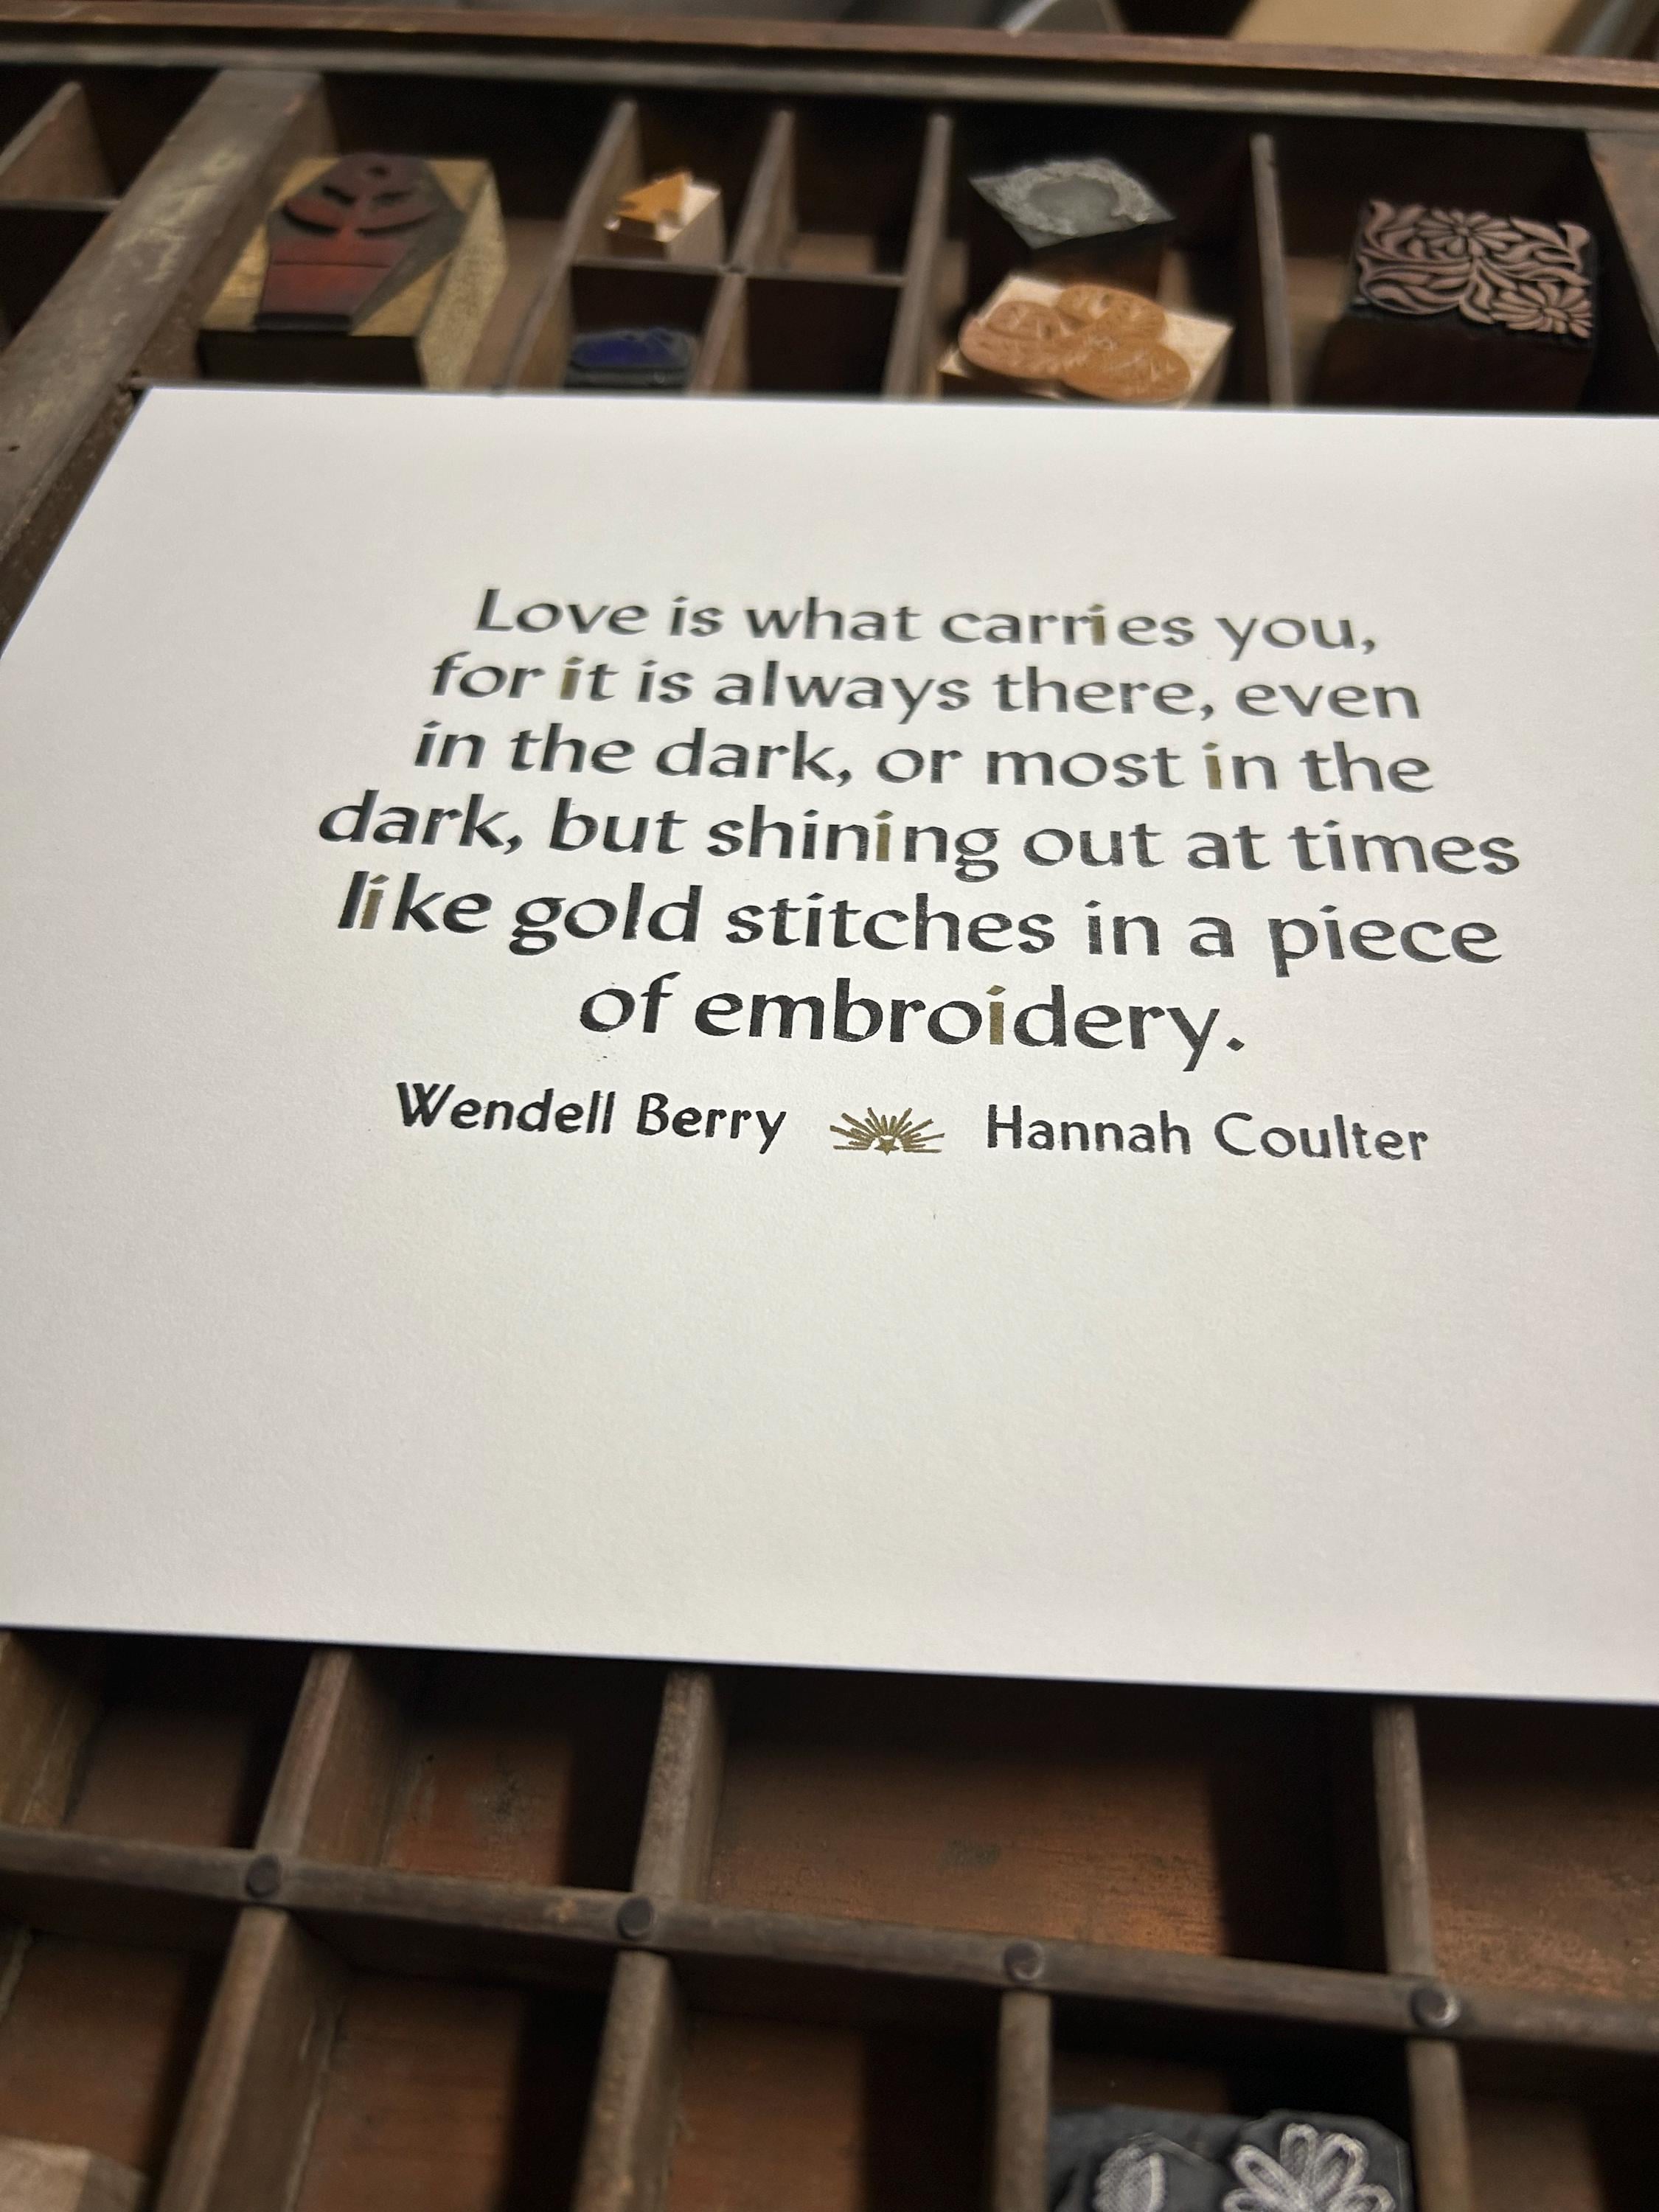 Love is what carries you,
for it is always there, even
in the dark, or most in the
dark, but shining out at times
like gold stitches in a piece
of embroidery.
Wendell Berry Hannah Coulter